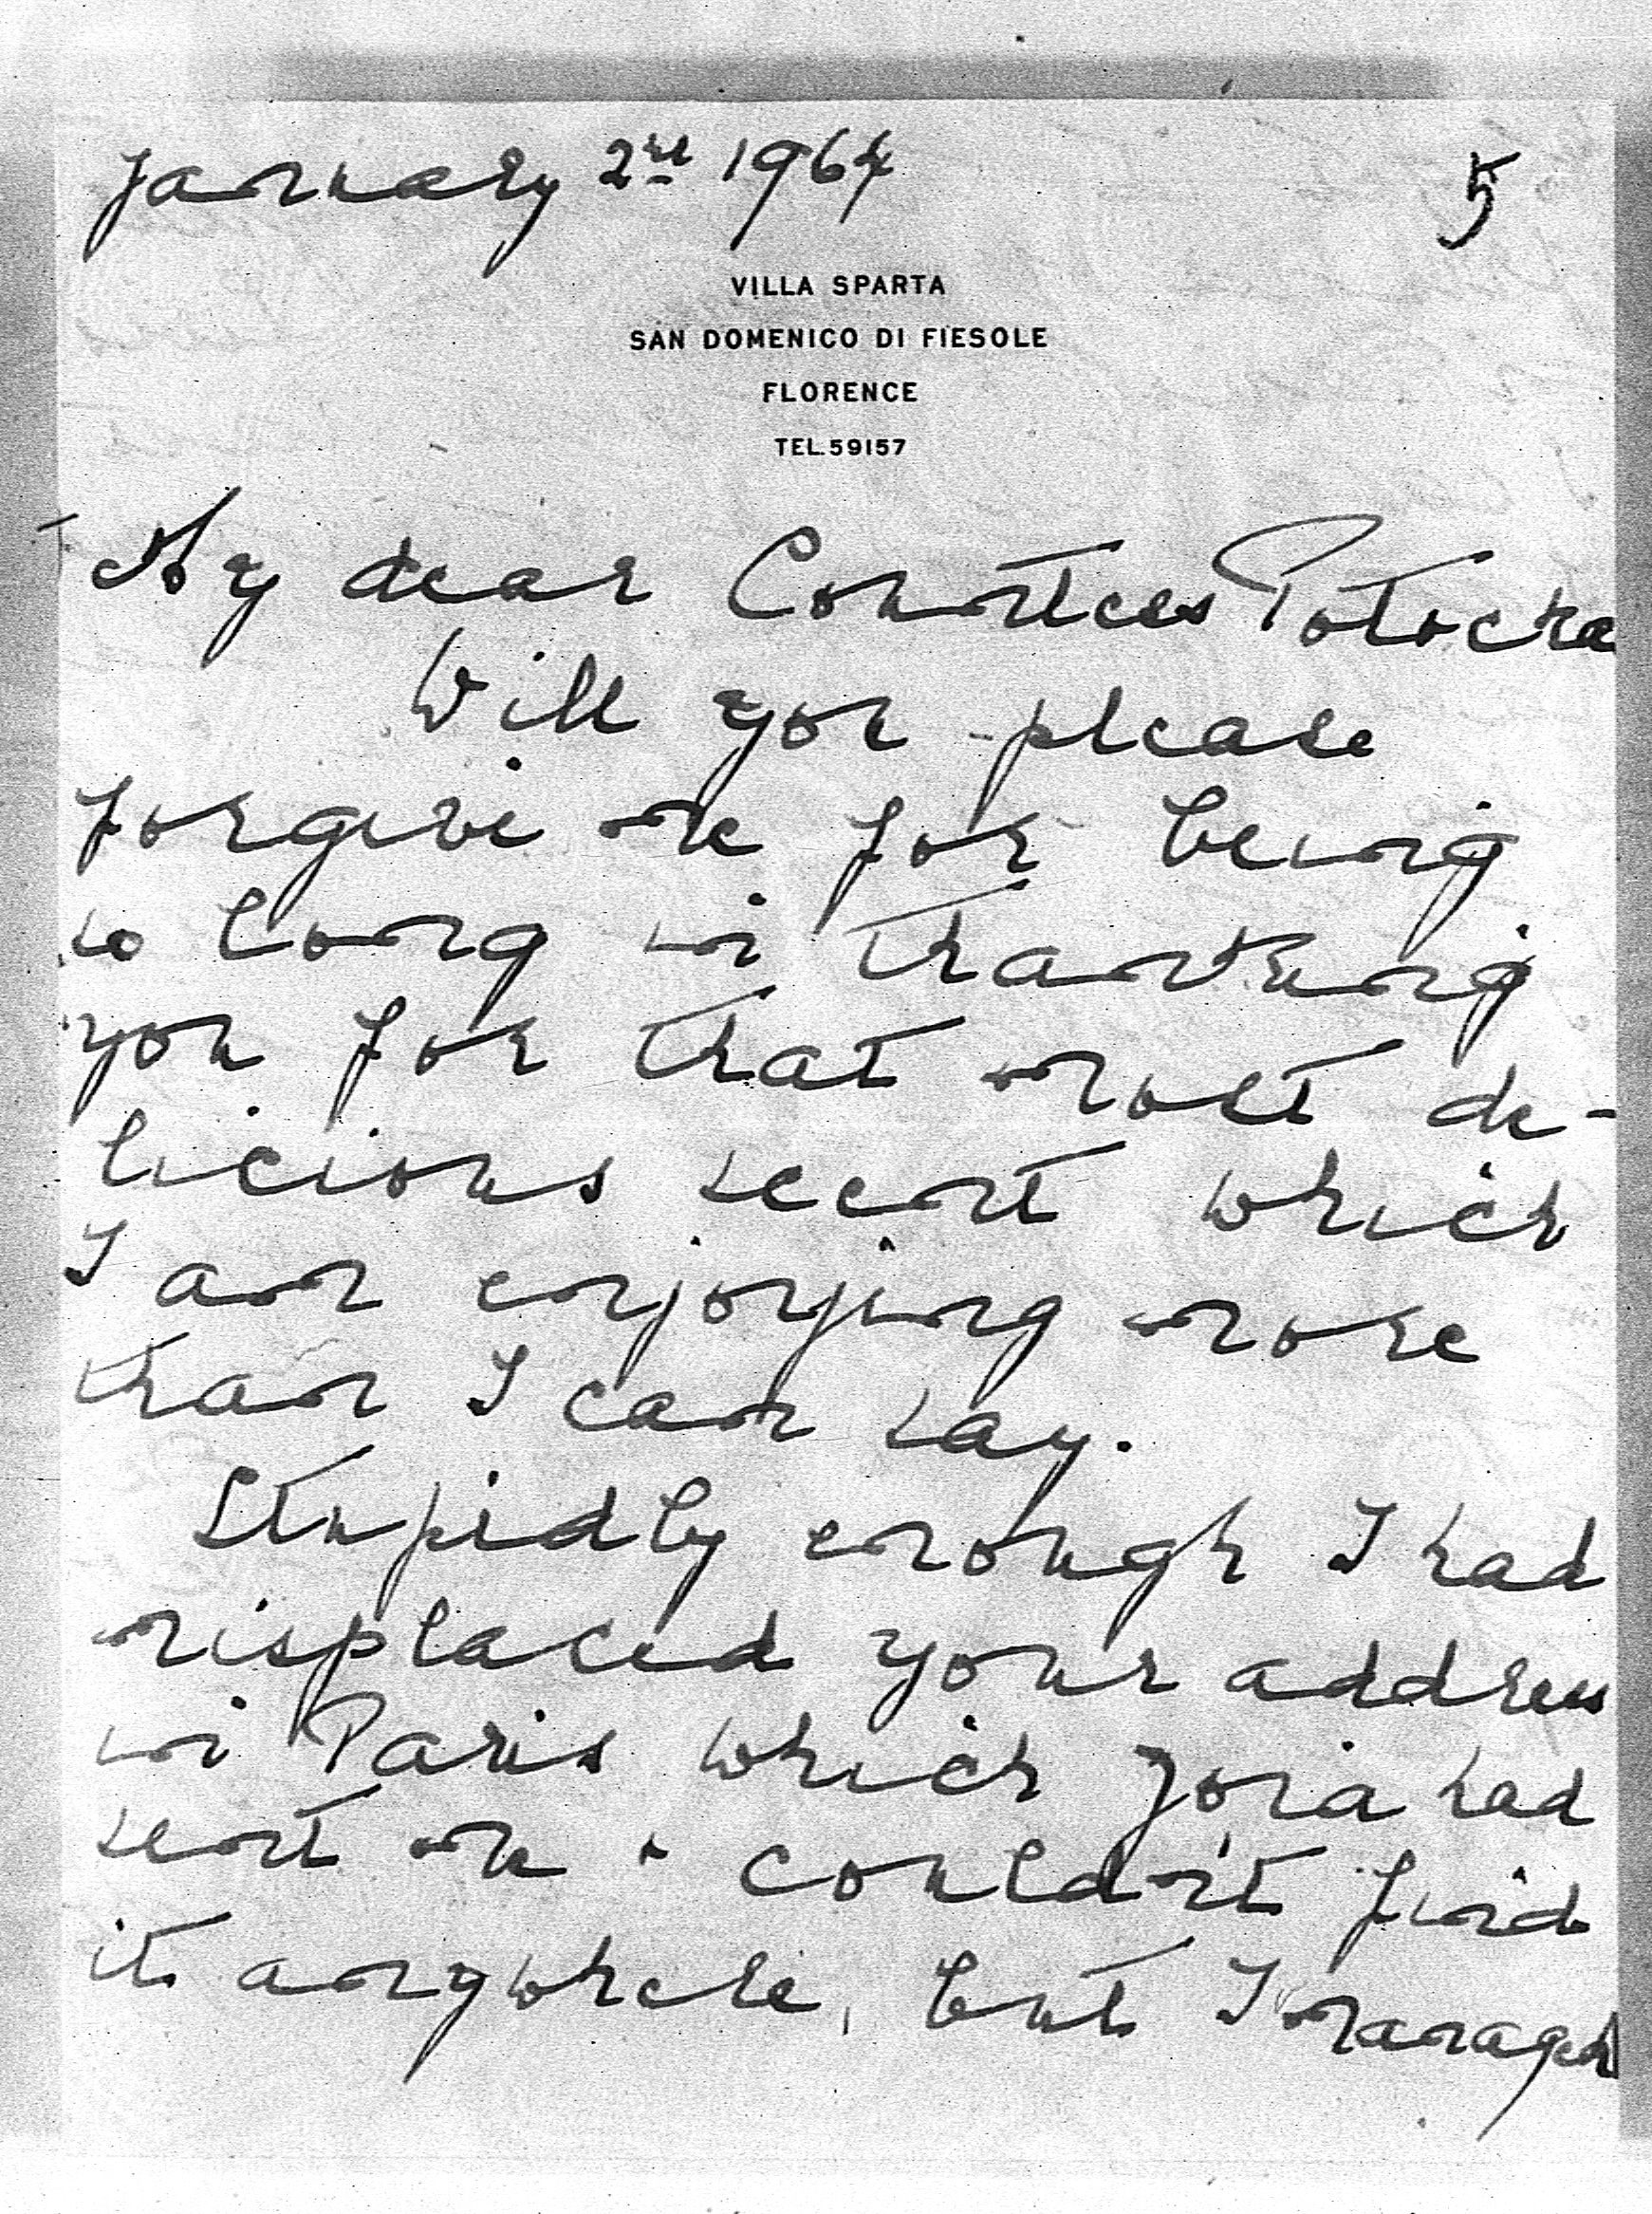 January 2nd 1964
5
VILLA SPARTA
SAN DOMENICO DI FIESOLE
FLORENCE
TEL. 59157
My dear Countess Potocka
Will you please
forgive me for being
so long in thanking
you for that most de-
licious scent which
I am enjoying more
than I can say.
Stupidly enough I had
misplaced your address
in Paris which Joia had
sent me & couldn't find
it anywhere, but I managed